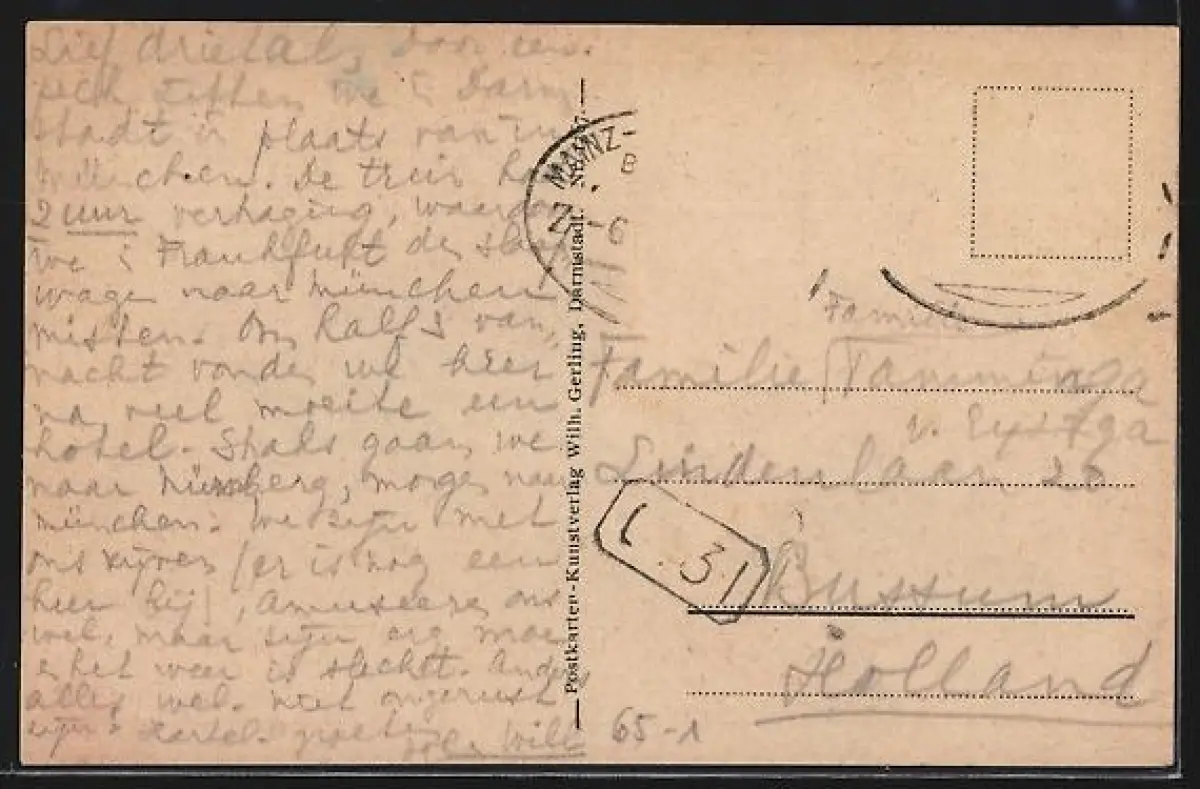 Lief drietal, door een
pech zitten we i Darm
stadt i plaats van in
München. De trein had
2 uur vertraging, waardoor
we i Frankfurt de slaap
wagen naar München
misten. Om half 5 van
nacht vonden we hier
na veel moeite een
hotel. Straks gaan we
naar Nürnberg, morgen naar
München. We zijn met
ons vijven (er is nog een
hier bij), amuseeren ons
wel, maar zijn erg moe
& het weer is slecht. Anders
alles wel. Niet ongerust
zijn. Hartel. groeten
Will
Postkarten-Kunstverlag Wilh. Gerling, Darmstadt.
MAINZ-
B
-6
Familie
Familie Tamminga
v. Eysinga
Lindenlaan 26
31
Bussum
Holland
65-1